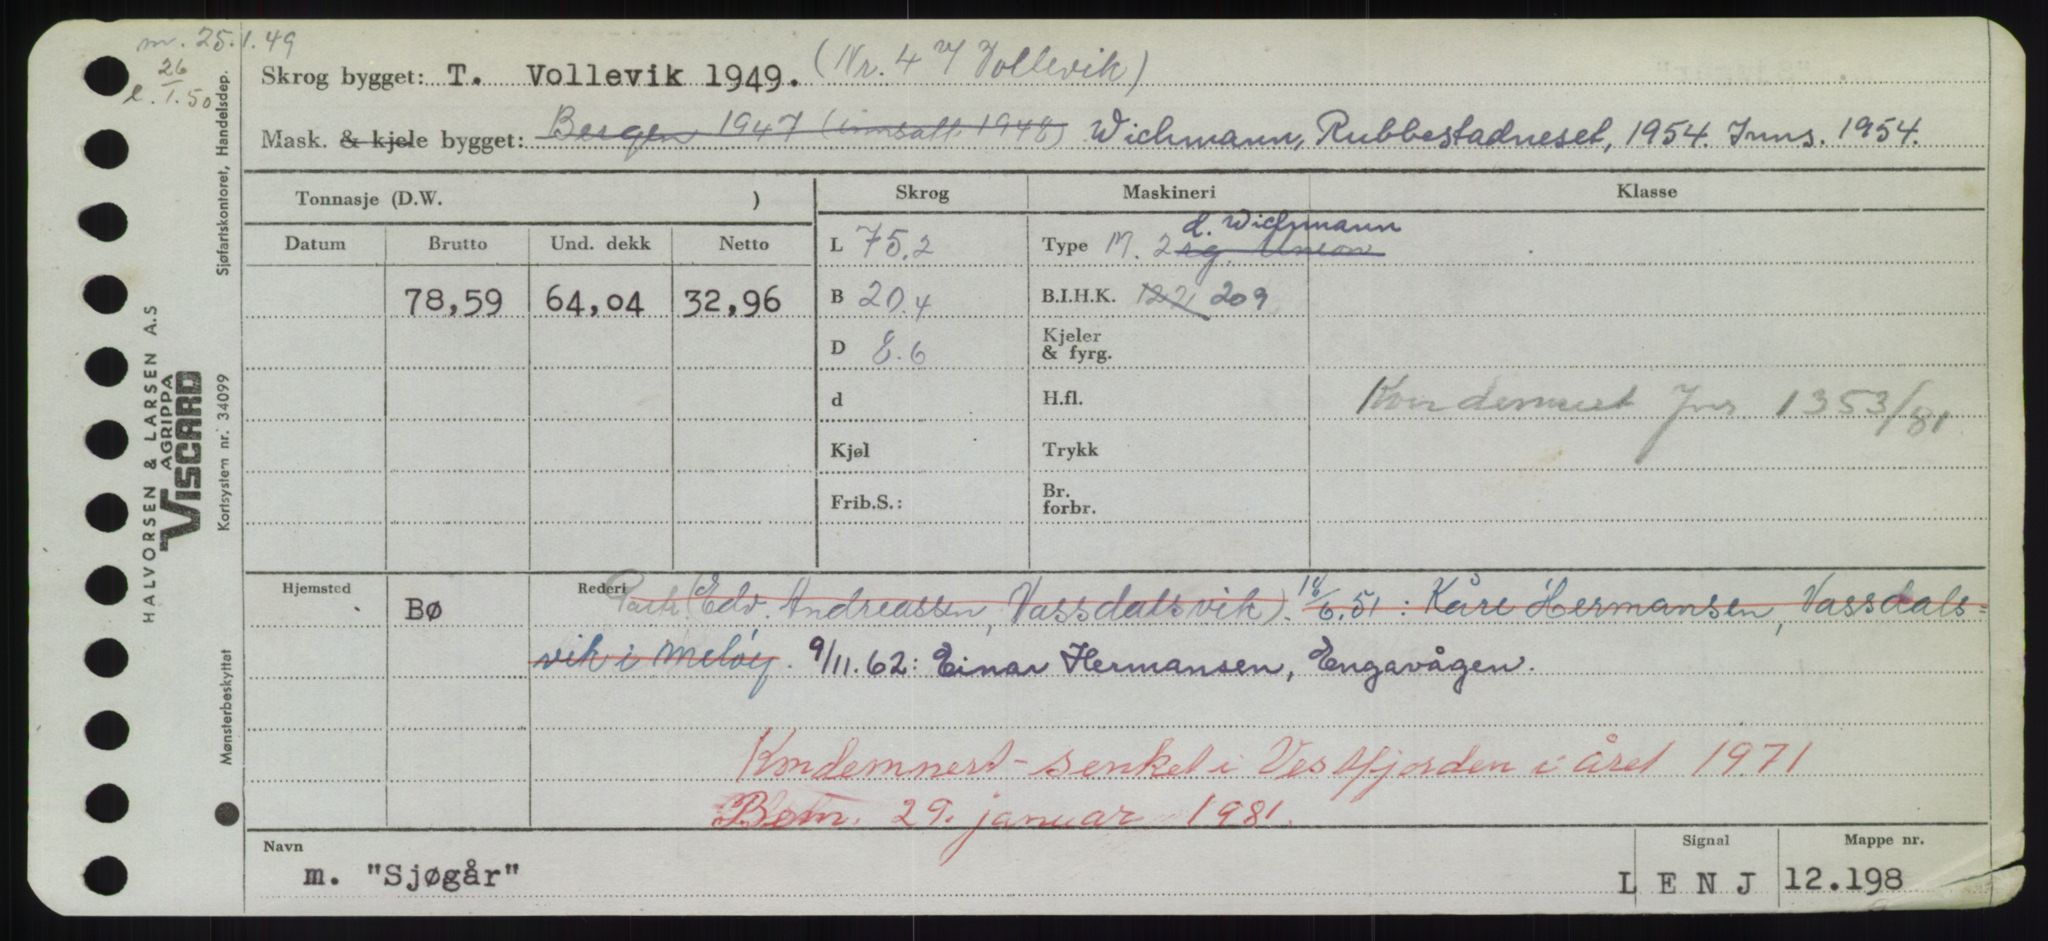 m. 25.1.49
26
e. 1.50
Skrog bygget: T. Vollevik 1949. (Nr. 4 Vollevik)
Mask. & kjele bygget: Bergen 1947 (innsatt 1948) Wichmann, Rubbestadneset, 1954. Inns. 1954.
Tonnasje (D.W. ) Skrog Maskineri Klasse
Datum Brutto Und. dekk Netto L 75.2 Type M. 2 sg. Union d. Wichmann
78,59 64,04 32,96 B 20.4 B.I.H.K. 122 209
D 8.6 Kjeler & fyrg.
d H.fl. Kondemnert Jnr 1353/81
Kjøl Trykk
Frib.S.: Br. forbr.
Hjemsted Bø Rederi Part. (Edv. Andreassen, Vassdalsvik). 18/6.51: Kåre Hermansen, Vassdals-
vik i Meløy. 9/11.62: Einar Hermansen, Engavågen.
Kondemnert - senket i Vestfjorden i året 1971
Bem. 29. januar 1981.
Navn Signal Mappe nr.
m. "Sjøgår" L E N J 12.198
HALVORSEN & LARSEN A.S
AGRIPPA
VISCARD
Sjøfartskontoret, Handelsdep.
Kortsystem nr. 34099
Mønsterbeskyttet